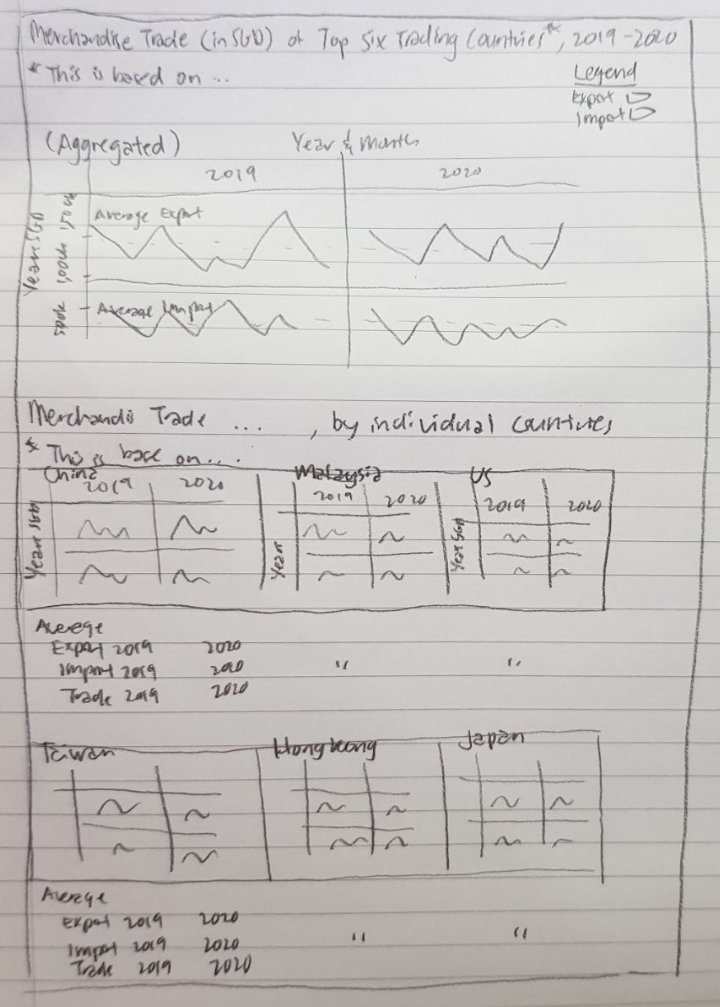 Merchandise Trade (in SGD) of Top Six Trading Countries*, 2019-2020
* This is based on ...
Legend
Export
Import
(Aggregated)
Year & Month
2019 2020
Average Export
Average Import
Merchandis Trade ... , by individual Countries
* This is base on....
China Malaysia US
2019 2020 2019 2020 2019 2020
Average
Export 2019 2020
Import 2019 2020 " "
Trade 2019 2020
Taiwan Hong kong Japan
Average
Export 2019 2020
Import 2019 2020 " "
Trade 2019 2020